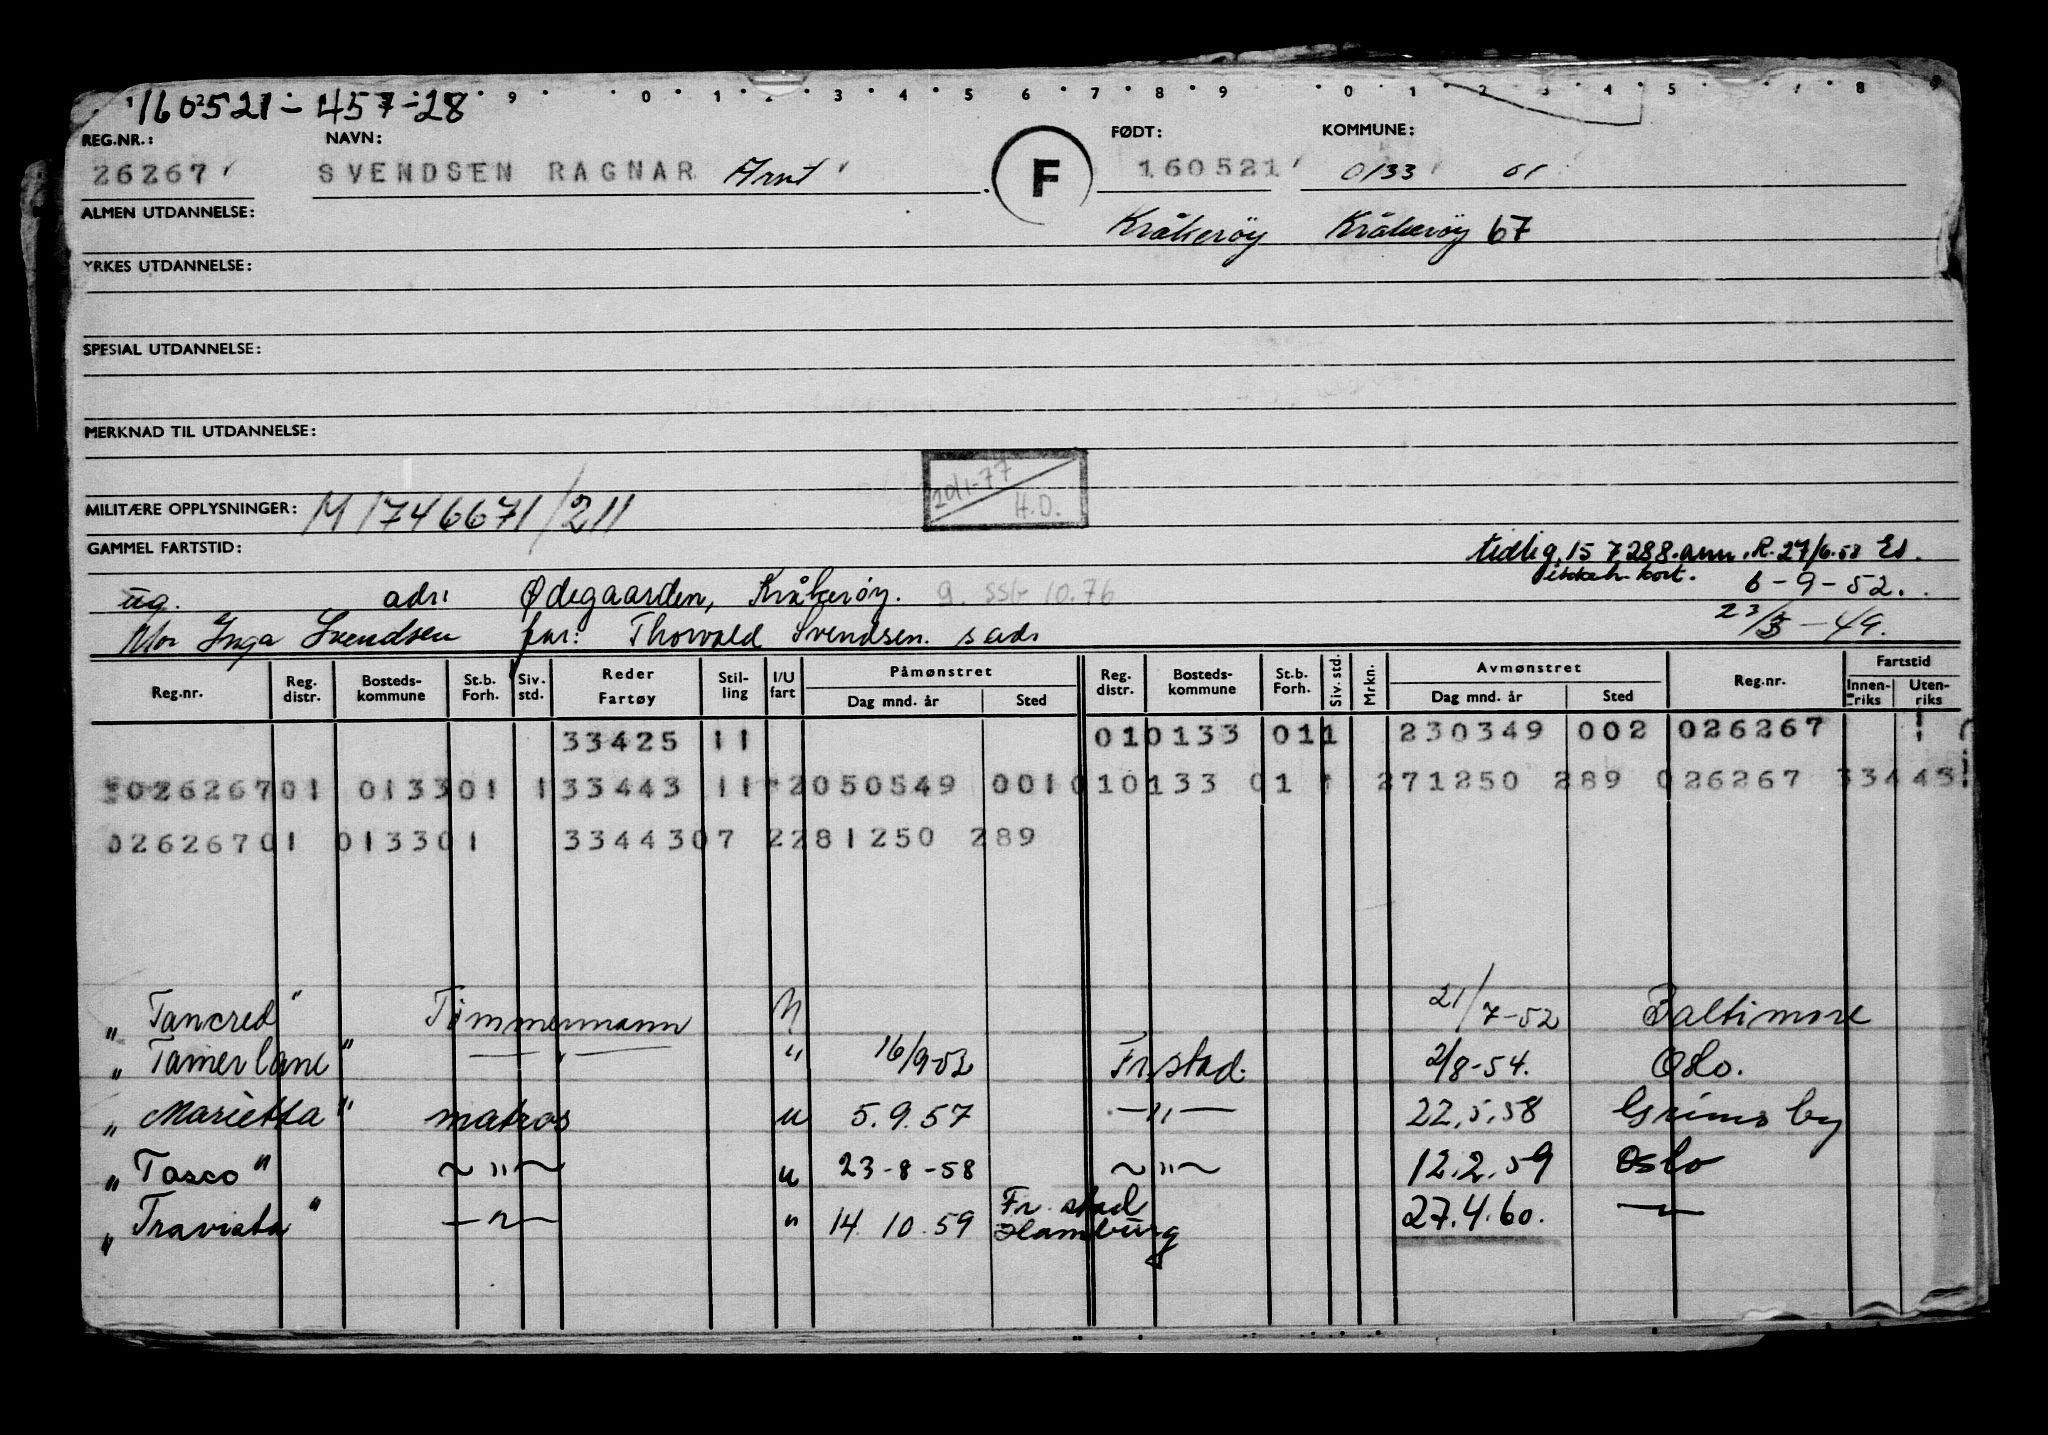 160521-457-28
9 0 1 2 3 4 5 6 7 8 9 0 1 2 3 4 5 7 8 9
REG.NR.: NAVN: FØDT: KOMMUNE:
26267 SVENDSEN RAGNAR Arnt F 160521 0133 01
ALMEN UTDANNELSE: Kråkerøy Kråkerøy 67
YRKES UTDANNELSE:
SPESIAL UTDANNELSE:
MERKNAD TIL UTDANNELSE:
20/1-77 H.D.
MILITÆRE OPPLYSNINGER: M 1746671/211
GAMMEL FARTSTID: tidlig. 15 7288. ann. R. 27/6.58 Es.
kort. 6-9-52.
ug. adr: Ødegaarden, Kråkerøy. g. ssb 10.76
23/3-49.
Mor Inga Svendsen far: Thorvald Svendsen. s adr
Reg.nr. Reg. distr. Bosteds-kommune St.b. Forh. Siv. std. Reder Fartøy Stil-ling I/U fart Påmønstret Dag mnd. år Sted Reg. distr. Bosteds-kommune St.b. Forh. Siv. std. Mrkn. Avmønstret Dag mnd. år Sted Reg.nr. Fartstid Innen-riks Uten-riks
33425 11 010133 011 230349 002 026267
02626701 013301 1 33443 11 2050549 001 010133 01 1 271250 289 026267 33443
02626701 013301 3344307 2281250 289
"Tancred" Tømmermann U 21/7-52 Baltimore
"Tamerlane" — " — " 16/9-52 Fr.stad. 2/8-54. Oslo.
"Marietta" matros u 5.9.57 — " — 22.5.58 Grimsby
"Tosco" ~ " ~ u 23-8-58 ~ " ~ 12.2.59 Oslo
"Traviata" — " — " 14.10.59 Fr.stad Hamburg 27.4.60. — " —